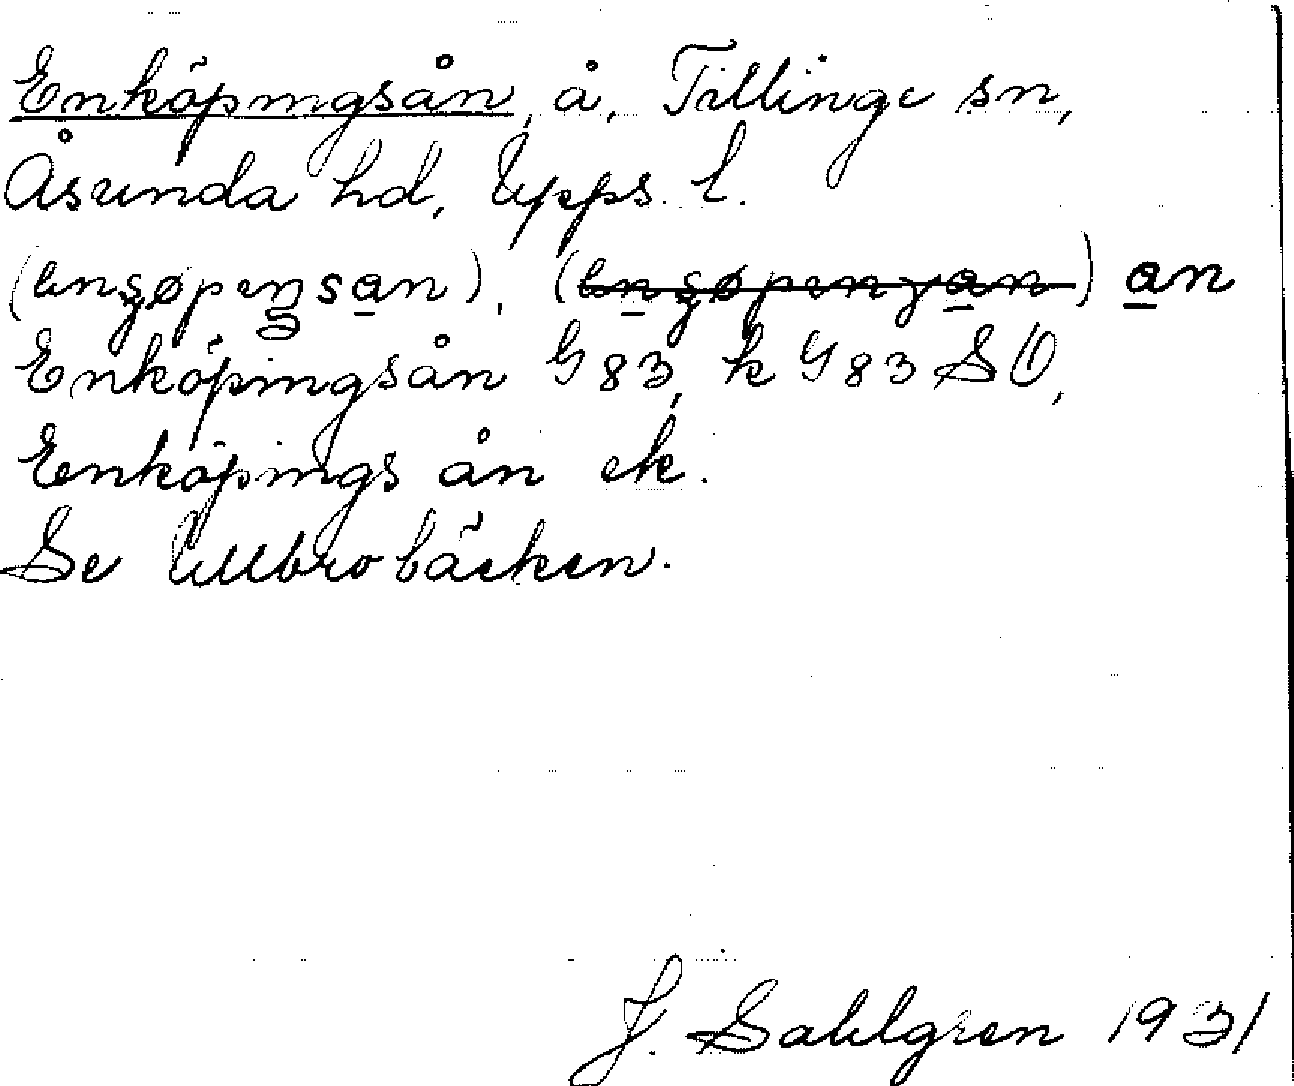 Enköpingsån, å, Tillinge sn,
Åsunda hd, Upps. l.
an
Enköpingsån G 83, k G 83 SO,
Enköpings ån ek.
Se Ullbrobäcken.
J. Sahlgren 1931